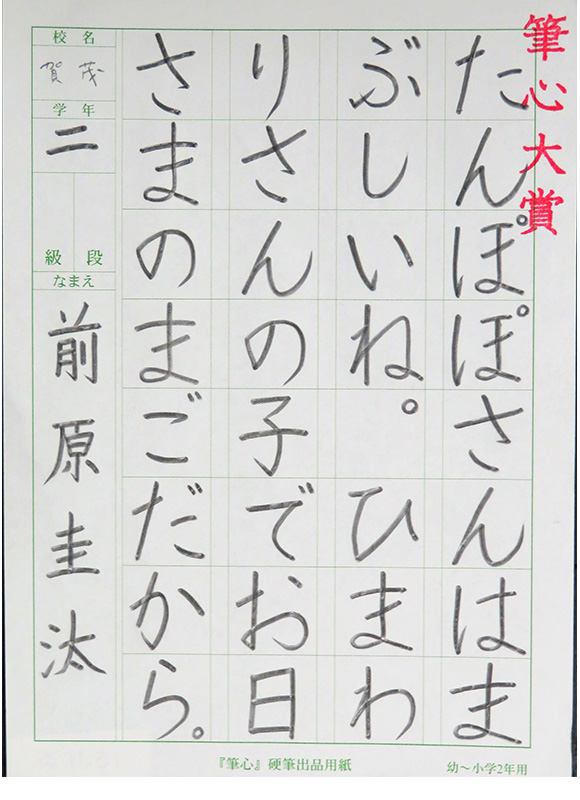 筆心大賞
たんぽぽさんはま
ぶしいね。ひまわ
りさんの子でお日
さまのまごだから。
校名
賀茂
学年
二
級 段
なまえ
前原圭汰
『筆心』硬筆出品用紙
幼～小学2年用